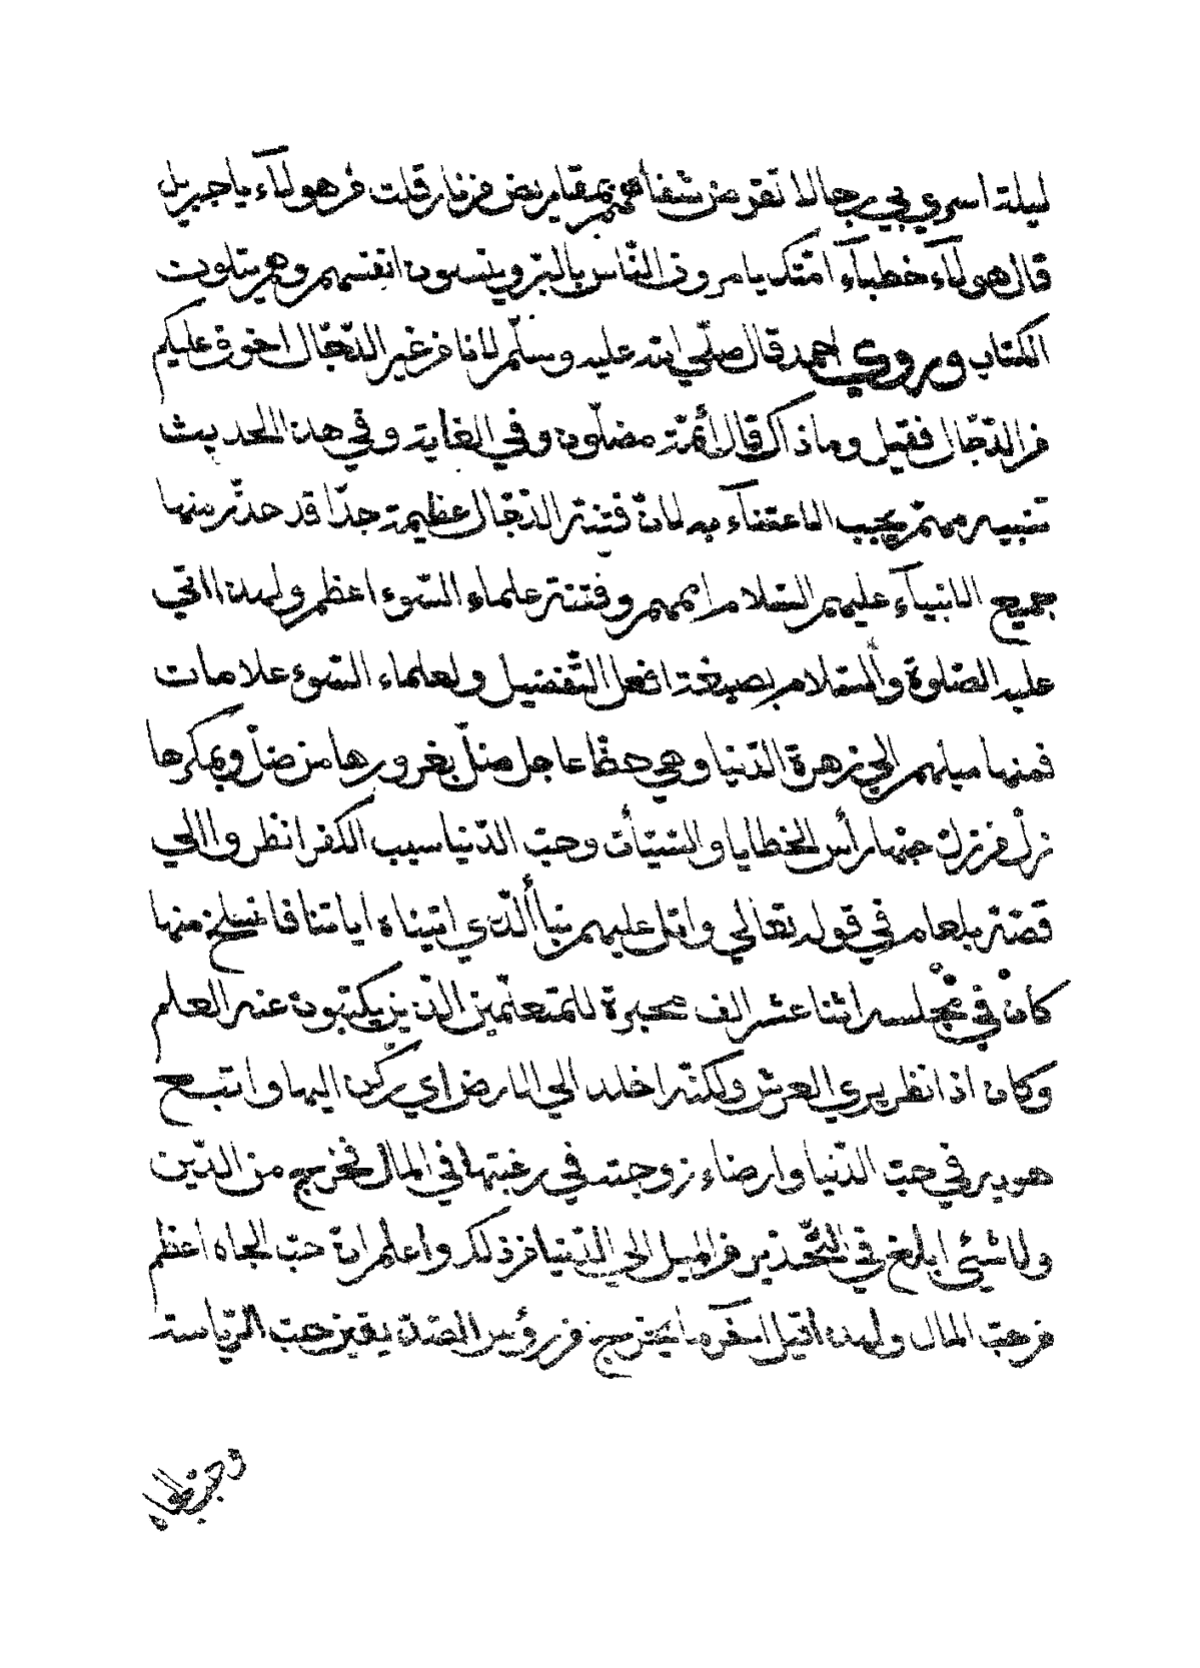 ليلة اسري بي رجالا تقرض شفاههم بمقاريض من نار قلت من هولآء يا جبريل
قال هولآء خطبآء امّتك يامرون النّاس بالبرّ وينسون انفسهم وهم يتلون
الكتاب وروي احمد قال صلّي الله عليه وسلّم لانا من غير الدّجّال اخوف عليكم
من الدّجّال فقيل وما ذاك قال أئمّة مضلّون وفي الغاية وفي هذا الحديث
تنبيه مهمّ يجب الاعتنآء به لانّ فتنة الدّجّال عظيمة جدّا قد حذّر منها
جميع الانبيآء عليهم السّلام اممهم وفتنة علماء السّوء اعظم ولهذا اتي
عليه الصّلوة والسّلام بصيغة افعل التّفضيل ولعلماء السّوء علامات
فمنها ميلهم الي زهرة الدّنيا وهي حظّ عاجل ضلّ بغرورها من ضلّ وبمكرها
زلّ من زلّ حبّها رأس الخطايا والسّيّأت وحبّ الدّنيا سبب الكفر انظروا الي
قصّة بلعام في قوله تعالي واتل عليهم نبأ الّذي اتيناه اياتنا فانسلخ منها
كان في مجلسه اثنا عشر الف محبرة للمتعلّمين الّذين يكتبون عنه العلم
وكان اذا نظر يري العرش ولكنّه اخلد الي الارض اي ركن اليها واتبع
هويه في حبّ الدّنيا وارضاء زوجته في رغبتها في المال فخرج من الدّين
ولا شيئ ابلغ في التّحذير من الميل الي الدّنيا من ذلك واعلم انّ حبّ الجاه اعظم
من حبّ المال ولهذا قيل اخر ما يخرج من رؤس الصّدّيقين حبّ الرّياسة